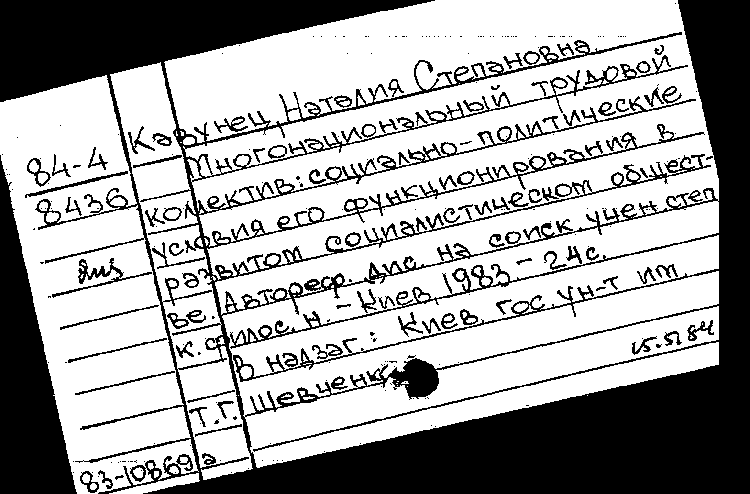 Кавунец, Наталия Степановна.
84-4
8436
Многонациональный трудовой
коллектив: социально-политические
условия его функционирования в
развитом социалистическом общест-
ве. Автореф. дис. на соиск. учен. степ
к. филос. н. - Киев, 1983 - 24с.
В надзаг.: Киев. гос. ун-т им.
Т.Г. Шевченк
15.5.84
83-10869а